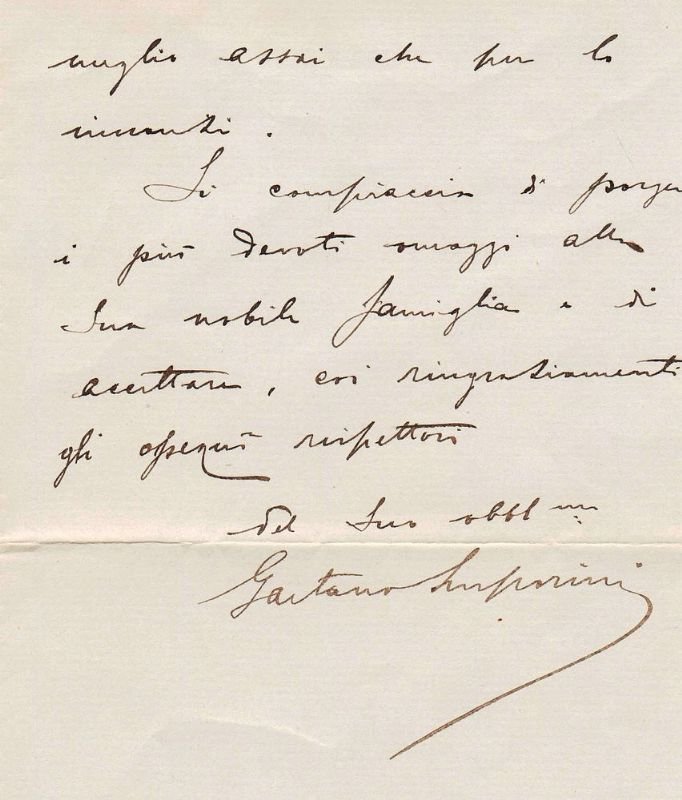 meglio assai che per lo
innanzi.
Si compiaccia di porger
i più devoti omaggi alla
Sua nobile famiglia e di
accettare, coi ringraziamenti
gli ossequi rispettosi
del Suo obbl mo
Gaetano Luporini